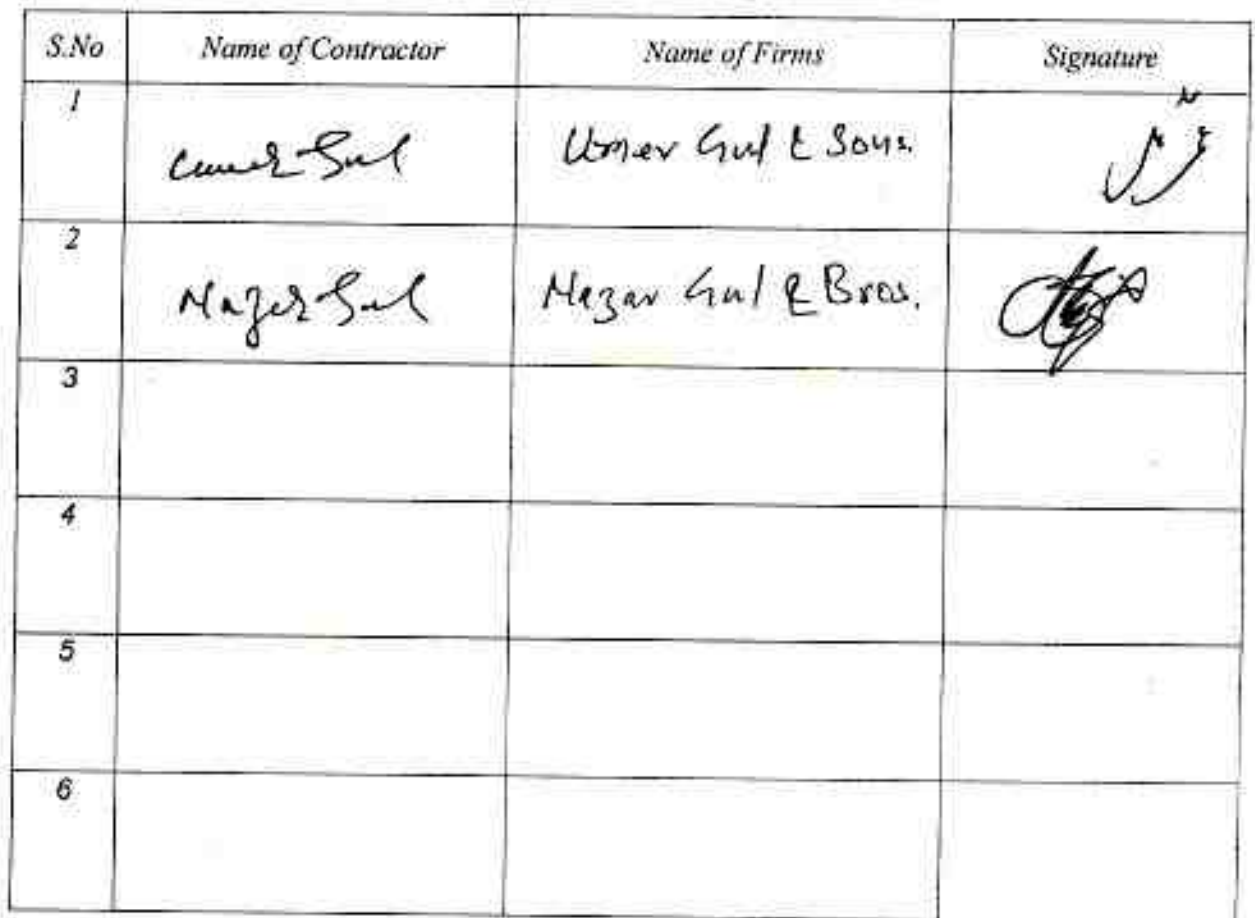 S.No Name of Contractor Name of Firms Signature
1 Umer Gul Umer Gul & Sons.
2 Nazer Gul Nazar Gul & Bros.
3
4
5
6